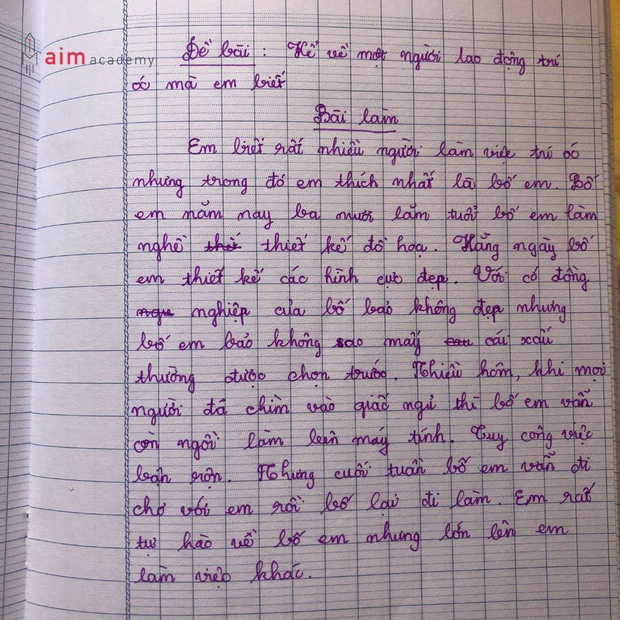 aim academy
Đề bài : Kể về một người lao động trí
óc mà em biết
Bài làm
Em biết rất nhiều người làm việc trí óc
nhưng trong đó em thích nhất là bố em. Bố
em năm nay ba mươi lăm tuổi bố em làm
nghề thiết kế đồ hoạ. Hằng ngày bố
em thiết kế các hình cực đẹp. Với có đồng
nghiệp của bố bảo không đẹp nhưng
bố em bảo không sao mấy cái xấu
thường được chọn trước. Nhiều hôm, khi mọi
người đã chìm vào giấc ngủ thì bố em vẫn
còn ngồi làm bên máy tính. Tuy công việc
bận rộn. Nhưng cuối tuần bố em vẫn đi
chơ với em rồi bố lại đi làm. Em rất
tự hào về bố em nhưng lớn lên em
làm việc khác.